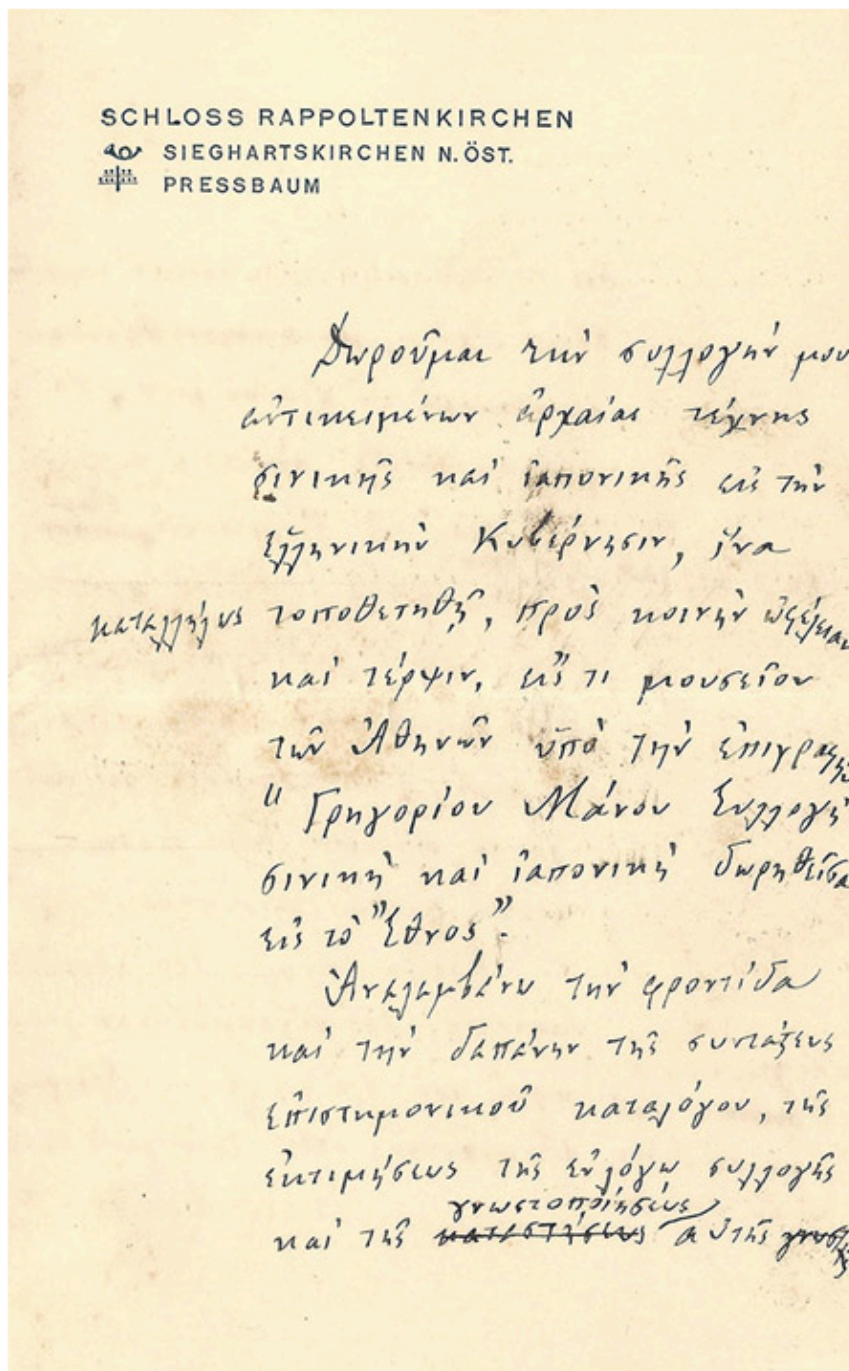 SCHLOSS RAPPOLTENKIRCHEN
SIEGHARTSKIRCHEN N. ÖST.
PRESSBAUM
Δωροῦμαι τὴν συλλογήν μου
ἀντικειμένων ἀρχαίας τέχνης
σινικῆς καὶ ἰαπονικῆς εἰς τὴν
ἑλληνικὴν Κυβέρνησιν, ἵνα
καταλλήλως τοποθετηθῇ, πρὸς κοινὴν ὠφέλειαν
καὶ τέρψιν, εἴς τι μουσεῖον
τῶν Ἀθηνῶν ὑπὸ τὴν ἐπιγραφὴν
"Γρηγορίου Μάνου Συλλογὴ
σινικὴ καὶ ἰαπονικὴ δωρηθεῖσα
εἰς τὸ Ἔθνος".
Ἀναλαμβάνω τὴν φροντίδα
καὶ τὴν δαπάνην τῆς συντάξεως
ἐπιστημονικοῦ καταλόγου, τῆς
ἐκτιμήσεως τῆς ἐν λόγῳ συλλογῆς
γνωστοποιήσεως
καὶ τῆς αὐτῆς